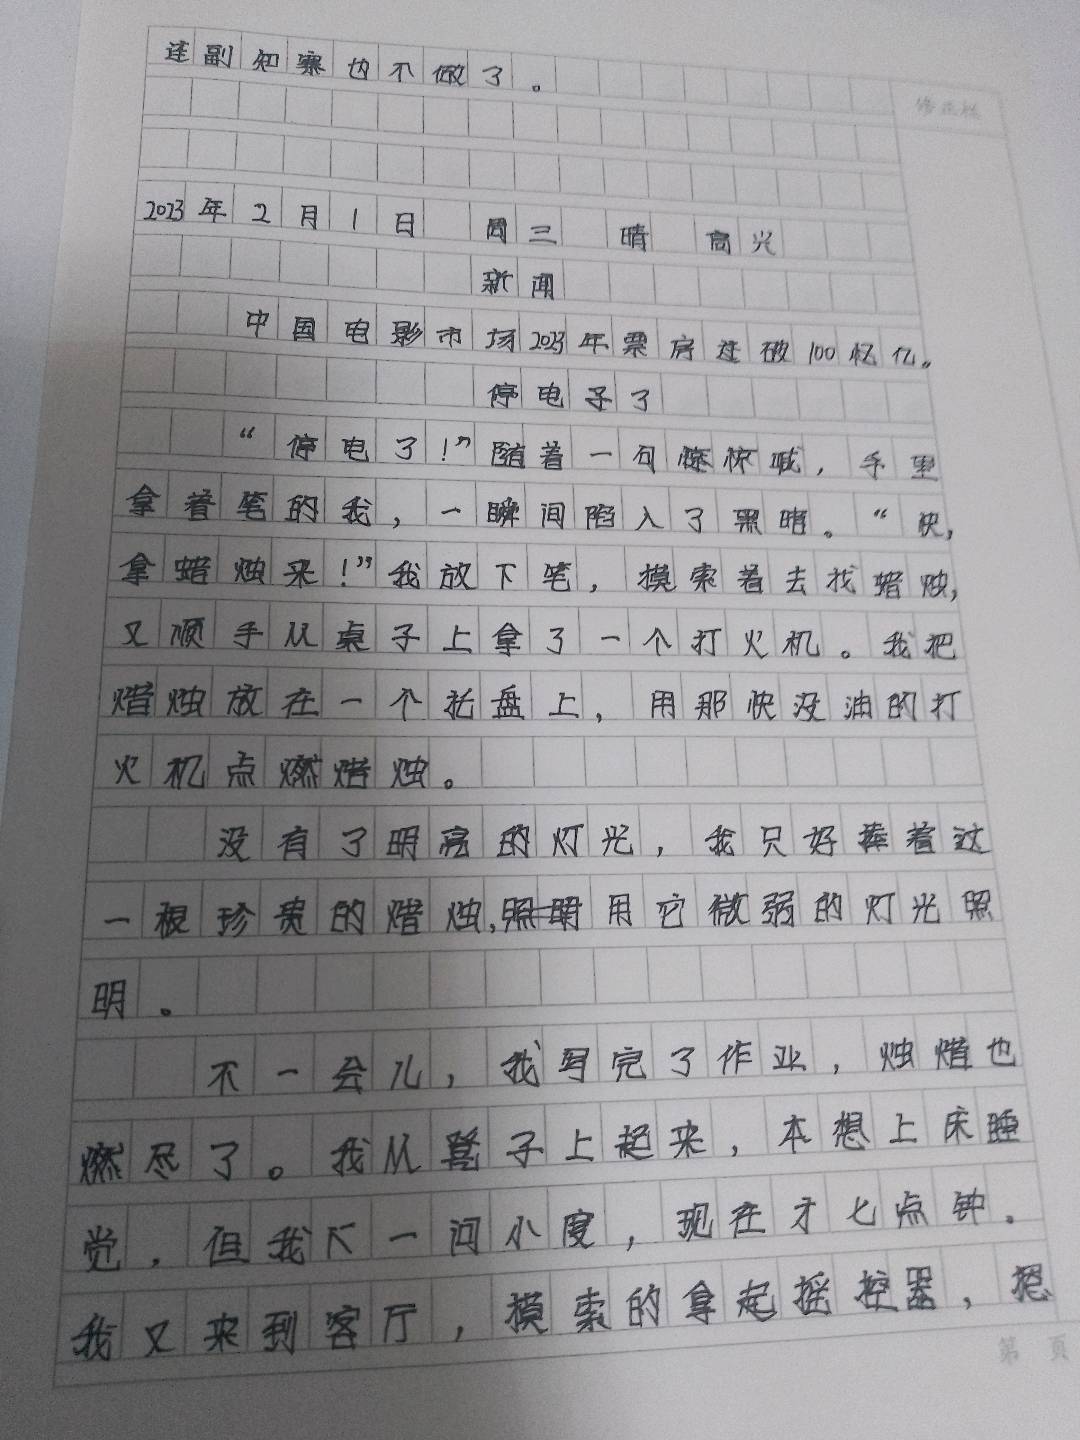 连副知寨也不做了。
修正栏
2023年2月1日 周三 晴 高兴
新闻
中国电影市场2023年票房连破100忆亿。
停电子了
“停电了!”随着一句惊喊,手里
拿着笔的我,一瞬间陷入了黑暗。“快,
拿蜡烛来!”我放下笔,摸索着去找蜡烛,
又顺手从桌子上拿了一个打火机。我把
蜡烛放在一个托盘上,用那快没油的打
火机点燃蜡烛。
没有了明亮的灯光,我只好捧着这
一根珍贵的蜡烛,照明用它微弱的灯光照
明。
不一会儿,我写完了作业,烛蜡也
燃尽了。我从凳子上起来,本想上床睡
觉,但我一问小度,现在才七点钟。
我又来到客厅,摸索的拿起摇控器,想
第 页